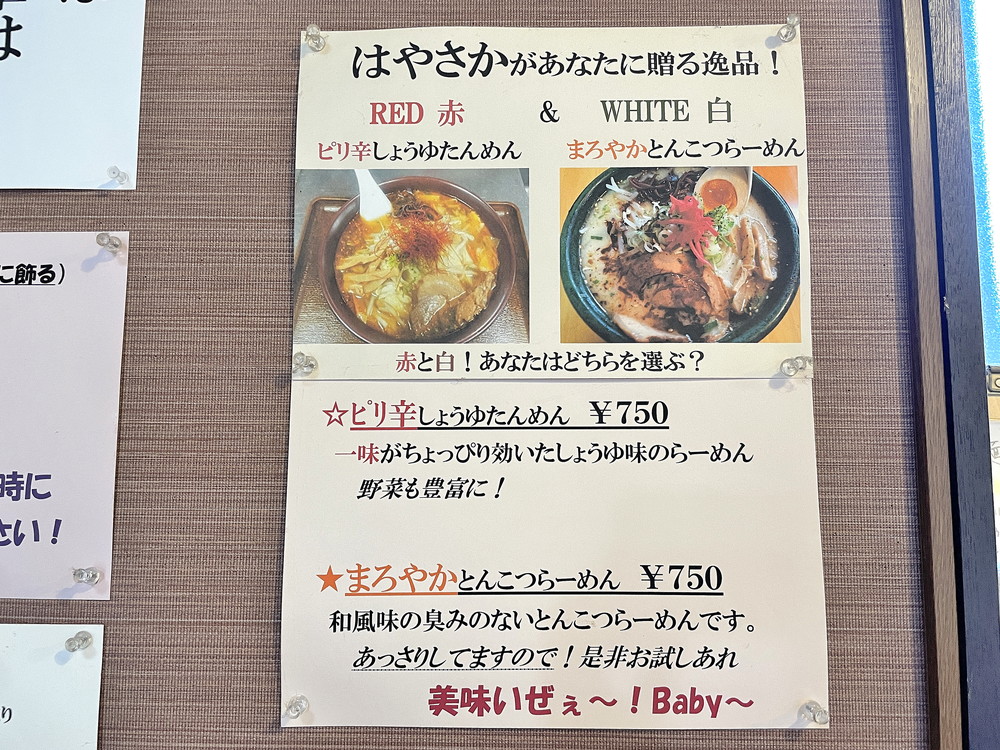 は
に飾る)
時に
さい!
り
はやさかがあなたに贈る逸品!
RED 赤 & WHITE 白
ピリ辛しょうゆたんめん まろやかとんこつらーめん
赤と白!あなたはどちらを選ぶ?
☆ピリ辛しょうゆたんめん ¥750
一味がちょっぴり効いたしょうゆ味のらーめん
野菜も豊富に!
★まろやかとんこつらーめん ¥750
和風味の臭みのないとんこつらーめんです。
あっさりしてますので!是非お試しあれ
美味いぜぇ～!Baby～